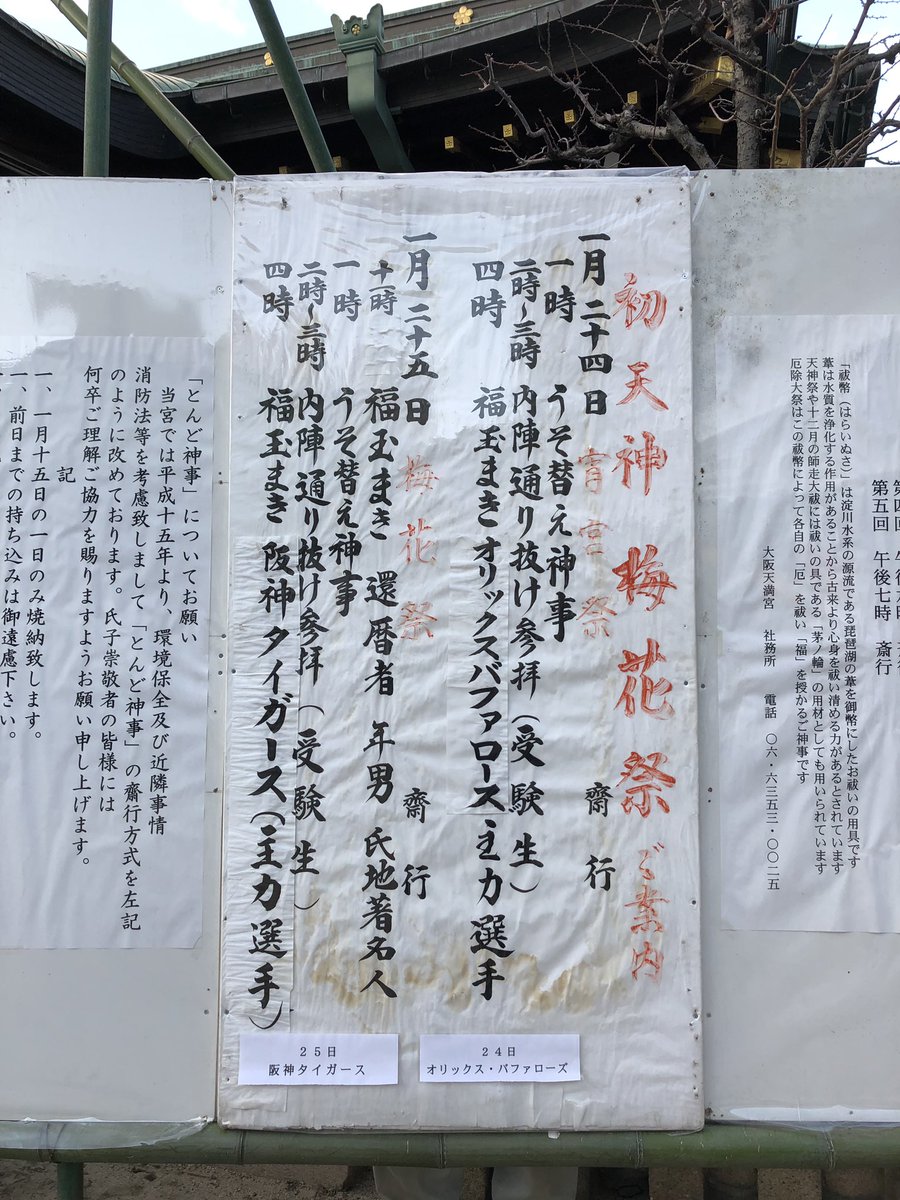 第四回
第五回　午後七時　斎行
「祓幣（はらいぬさ）」は淀川水系の源流である琵琶湖の葦を御幣にしたお祓いの用具です
葦は水質を浄化する作用があることから古来より心身を祓い清める力があるとされています
天神祭や十二月の師走大祓には祓いの具である「茅ノ輪」の用材としても用いられています
厄除大祭はこの祓幣によって各自の「厄」を祓い「福」を授かるご神事です
大阪天満宮　社務所　電話　〇六・六三五三・〇〇二五
初天神梅花祭ご案内
一月二十四日　宵宮祭　齋行
一時　うそ替え神事
二時～三時　内陣通り抜け参拝（受験生）
四時　福玉まきオリックスバファロース主力選手
一月二十五日　梅花祭　齋行
十一時　福玉まき　還暦者　年男　氏地著名人
一時　うそ替え神事
二時～三時　内陣通り抜け参拝（受験生）
四時　福玉まき　阪神タイガース（主力選手）
２４日
オリックス・バファローズ
２５日
阪神タイガース
「とんど神事」についてお願い
当宮では平成十五年より、環境保全及び近隣事情
消防法等を考慮致しまして「とんど神事」の齋行方式を左記
のように改めております。氏子崇敬者の皆様には
何卒ご理解ご協力を賜りますようお願い申し上げます。
記
一、一月十五日の一日のみ焼納致します。
一、前日までの持ち込みは御遠慮下さい。